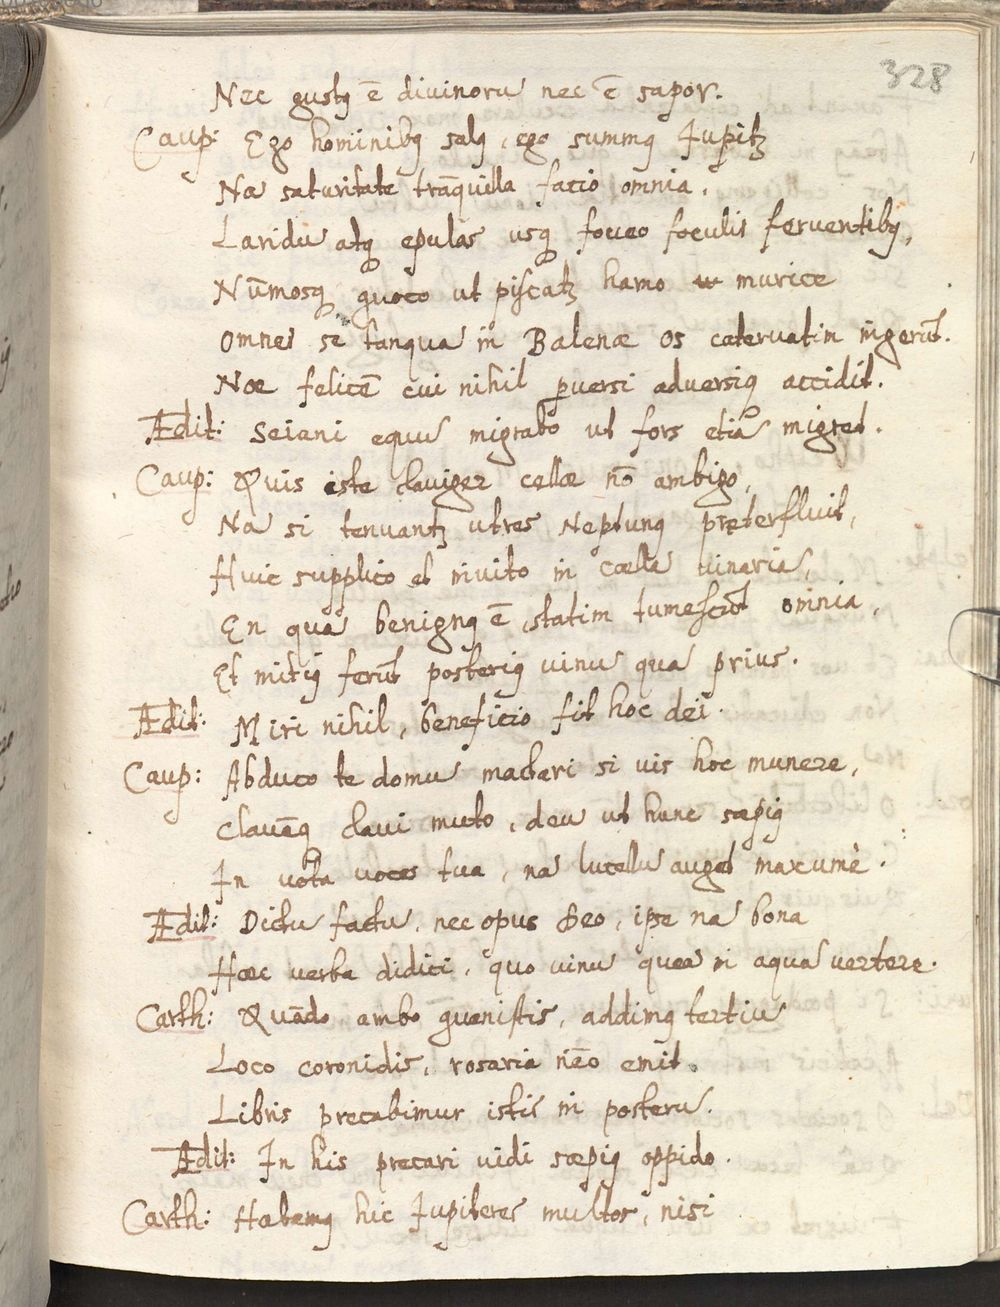 328
Nec gustꝰ ē diuinorū nec ē sapor.
Caup: Ego hominibꝰ salꝰ, ego summꝰ Jupitꝫ
Nā saturitate trāquilla facio omnia,
Laridū atqꝫ epulas usqꝫ foveo foculis ferventibꝰ,
Nūmosqꝫ quoco ut piscatꝫ hamo murice
Omnes se tanquā in Balenæ os catervatim ingerūt.
Noe felicē cui nihil ꝑversi adversiqꝫ accidit.
Ædit: Seiani equū migrabo ut fors etiā migret.
Caup: Quis iste claviger cellæ nō ambigo,
Nā si tenuantꝫ utres Neptunꝰ pręterfluit,
Huic supplico et invito in cœlla vinaria,
En quā benignꝰ ē, statim tumescūt omnia,
Et mitiꝰ ferūt posteriꝰ vinū quā prius.
Ædit: Miri nihil, beneficio fit hoc dei.
Caup: Abduco te domū mactari si vis hoc munere,
Clavāqꝫ clavi muto, deū ut hunc sæpiꝰ
In vota voces tua, nā lucellū auget maxumè.
Ædit: Dictū factū, nec opus Deo, ipse nā bona
Hæc verba didici, quo vinū queā in aquā vertere.
Carth: Quādo ambo gvenistis, addimꝰ tertiū
Loco coronidis, rosaria nēo emit.
Libris precabimur istis in posterū.
Ædit: In his precari vidi sæpiꝰ oppido.
Carth: Habemꝰ hic Jupiteres multos, nisi